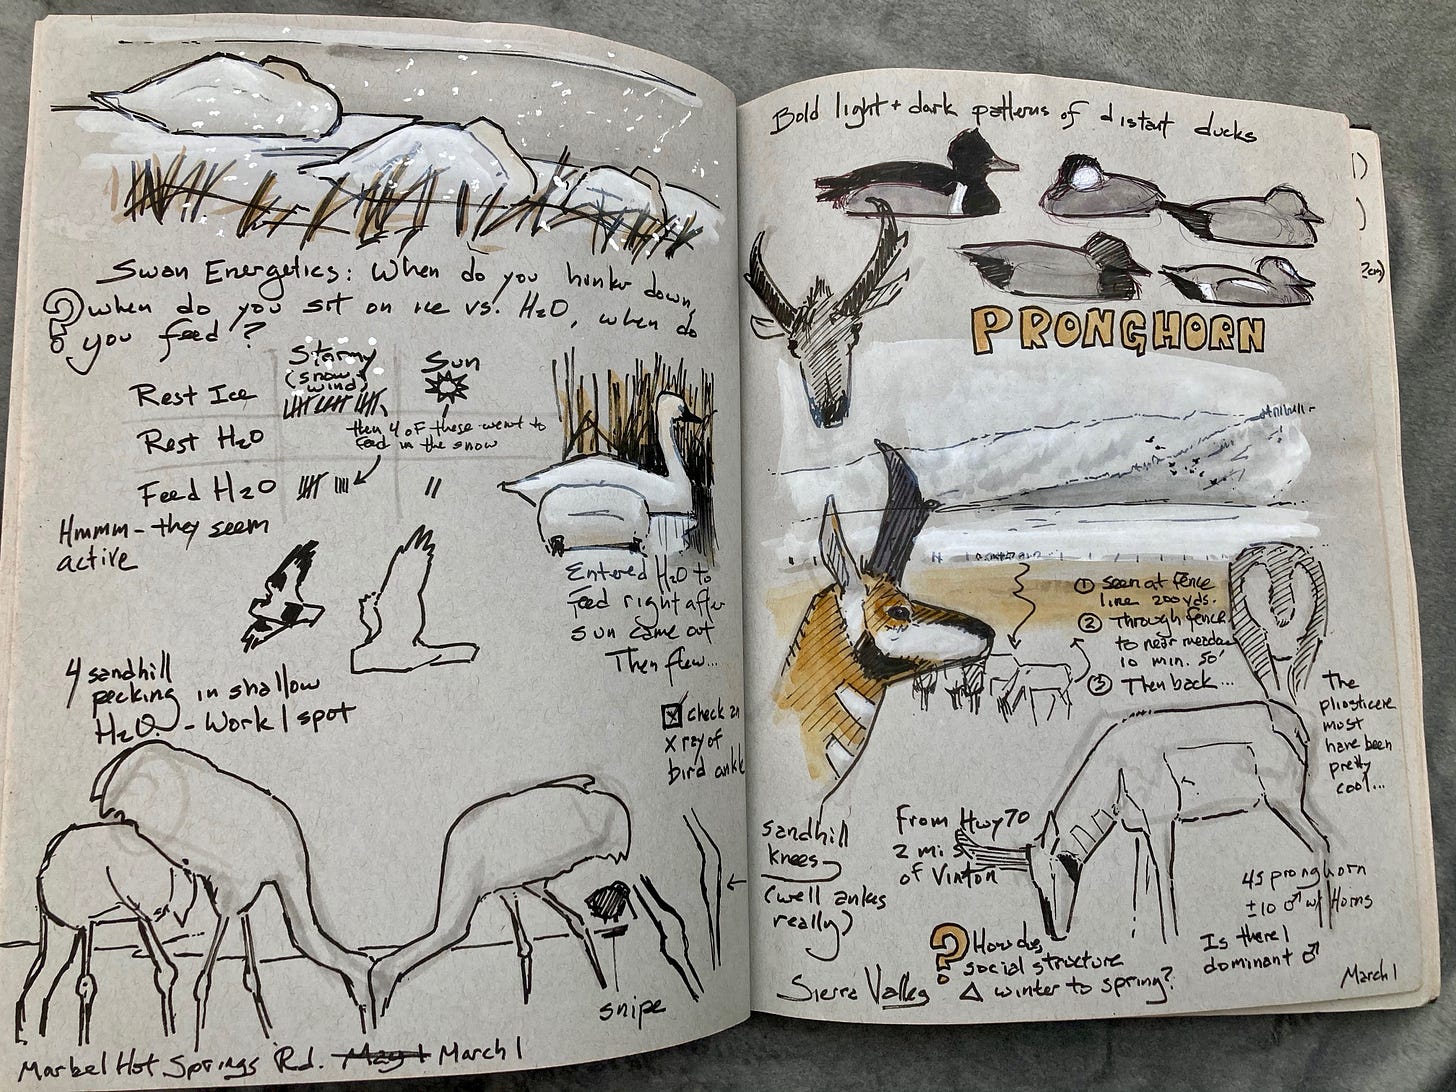 Swan Energetics: When do you hunker down,
? when do you sit on ice vs. H2O, when do
you feed?
Stormy
(snow
wind)
Sun
Rest Ice
Rest H2O
then 4 of these went to
feed in the snow
Feed H2O
Hmmm - they seem
active
Entered H2O to
feed right after
sun came out
Then flew...
4 sandhill
pecking in shallow
H2O. - Work 1 spot
check an
x ray of
bird ankle
snipe
Marbel Hot Springs Rd. May 1 March 1
Bold light + dark patterns of distant ducks
PRONGHORN
① seen at fence
line 200 yds.
② Through fence
to near meadow
10 min. 50'
③ Then back...
The
pliosticene
must
have been
pretty
cool...
sandhill
knees
(well ankes
really)
From Hwy 70
2 mi S
of Vinton
45 pronghorn
±10 ♂ w/ Horns
Is there 1
dominant ♂
? How does
social structure
Δ winter to spring?
Sierra Valley
March 1
2cm)